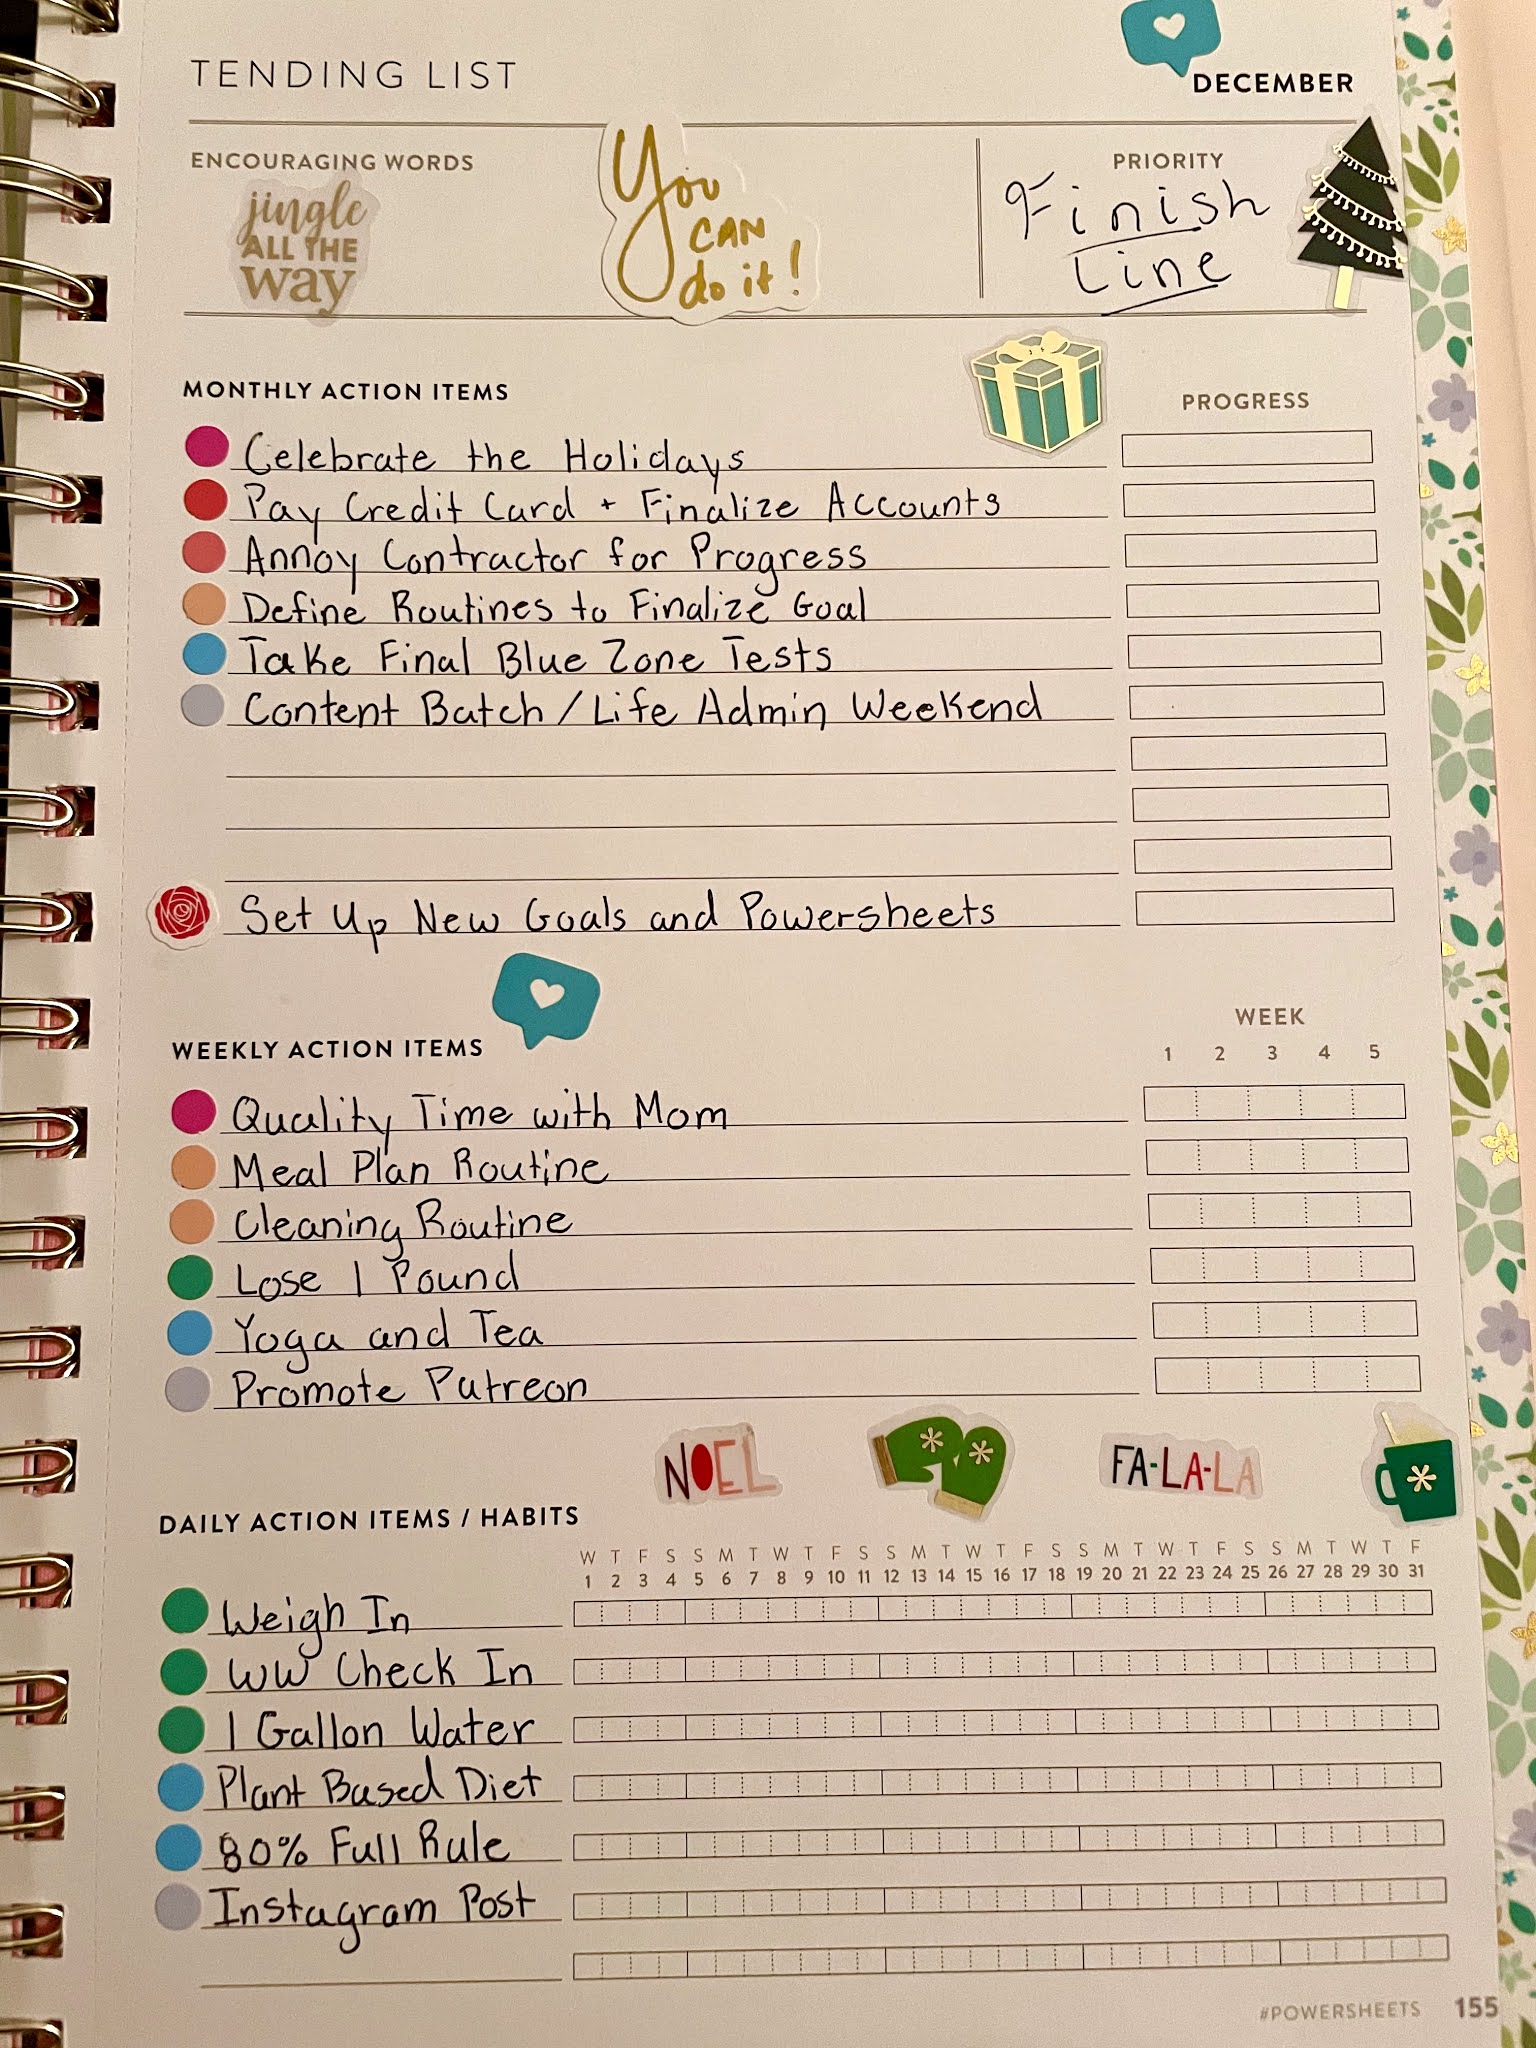 TENDING LIST
DECEMBER
ENCOURAGING WORDS
jingle
ALL THE
way
You
CAN
do it!
PRIORITY
Finish
Line
MONTHLY ACTION ITEMS
PROGRESS
Celebrate the Holidays
Pay Credit Card + Finalize Accounts
Annoy Contractor for Progress
Define Routines to Finalize Goal
Take Final Blue Zone Tests
Content Batch / Life Admin Weekend
Set Up New Goals and Powersheets
WEEKLY ACTION ITEMS
WEEK
1 2 3 4 5
Quality Time with Mom
Meal Plan Routine
Cleaning Routine
Lose 1 Pound
Yoga and Tea
Promote Patreon
NOEL
FA-LA-LA
DAILY ACTION ITEMS / HABITS
W T F S S M T W T F S S M T W T F S S M T W T F S S M T W T F
1 2 3 4 5 6 7 8 9 10 11 12 13 14 15 16 17 18 19 20 21 22 23 24 25 26 27 28 29 30 31
Weigh In
WW Check In
1 Gallon Water
Plant Based Diet
80% Full Rule
Instagram Post
#POWERSHEETS 155